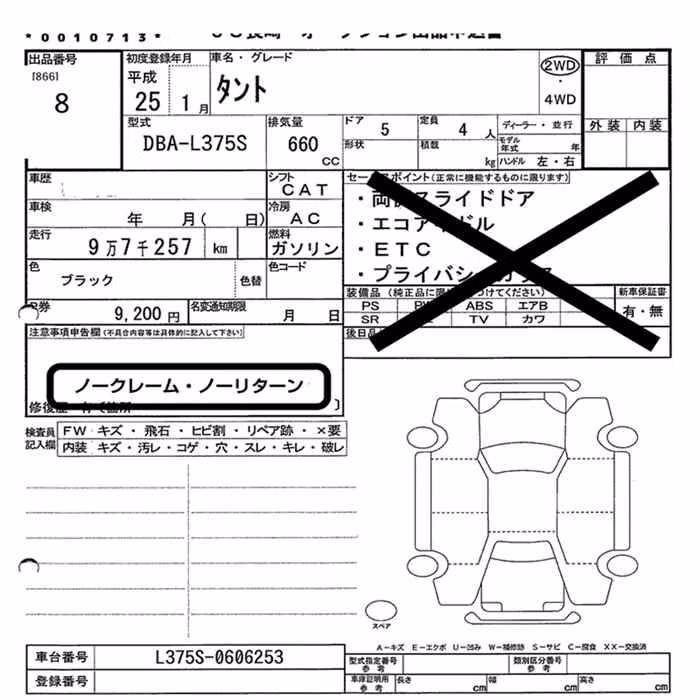 *0010713*
出品番号
[866]
8
初度登録年月
平成
25 1月
車名・グレード
タント
2WD
・
4WD
評価点
外装 内装
型式
DBA-L375S
排気量
660
CC
ドア 5
定員 4 人
ディーラー・並行
形状
積載 kg
モデル年式 年
ハンドル 左・右
車歴
シフト
CAT
車検 年 月( 日)
冷房
AC
走行
9万7千257 km
燃料
ガソリン
色
ブラック
色替
色コード
R券
9,200円
名変通知期限
月 日
セールスポイント(正常に機能するものに限ります)
・両側スライドドア
・エコアイドル
・ETC
・プライバシーガラス
装備品(純正品に限り
つけてください)
新車保証書
PS ABS エアB
有・無
SR TV カワ
後日品
注意事項申告欄(不具合内容等は具体的に記入して下さい)
ノークレーム・ノーリターン
検査員
記入欄
FW キズ・飛石・ヒビ割・リペア跡・×要
内装・キズ・汚レ・コゲ・穴・スレ・キレ・破レ
スペア
A-キズ E-エクボ U-凹み W-補修跡 S-サビ C-腐食 XX-交換済
車台番号
L375S-0606253
登録番号
型式指定番号
参考
類別区分番号
参考
車庫証明用
参考
長さ cm
幅 cm
高さ cm